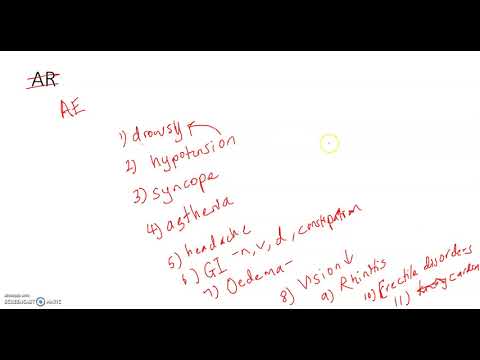 AR
AE
1) drowsy
2) hypotension
3) syncope
4) asthenia
5) headache
6) GI - n, v, d, constipation
7) Oedema -
8) Vision ↓
9) Rhinitis
10) Erectile disorders
11)
SCREENCAST-O-MATIC